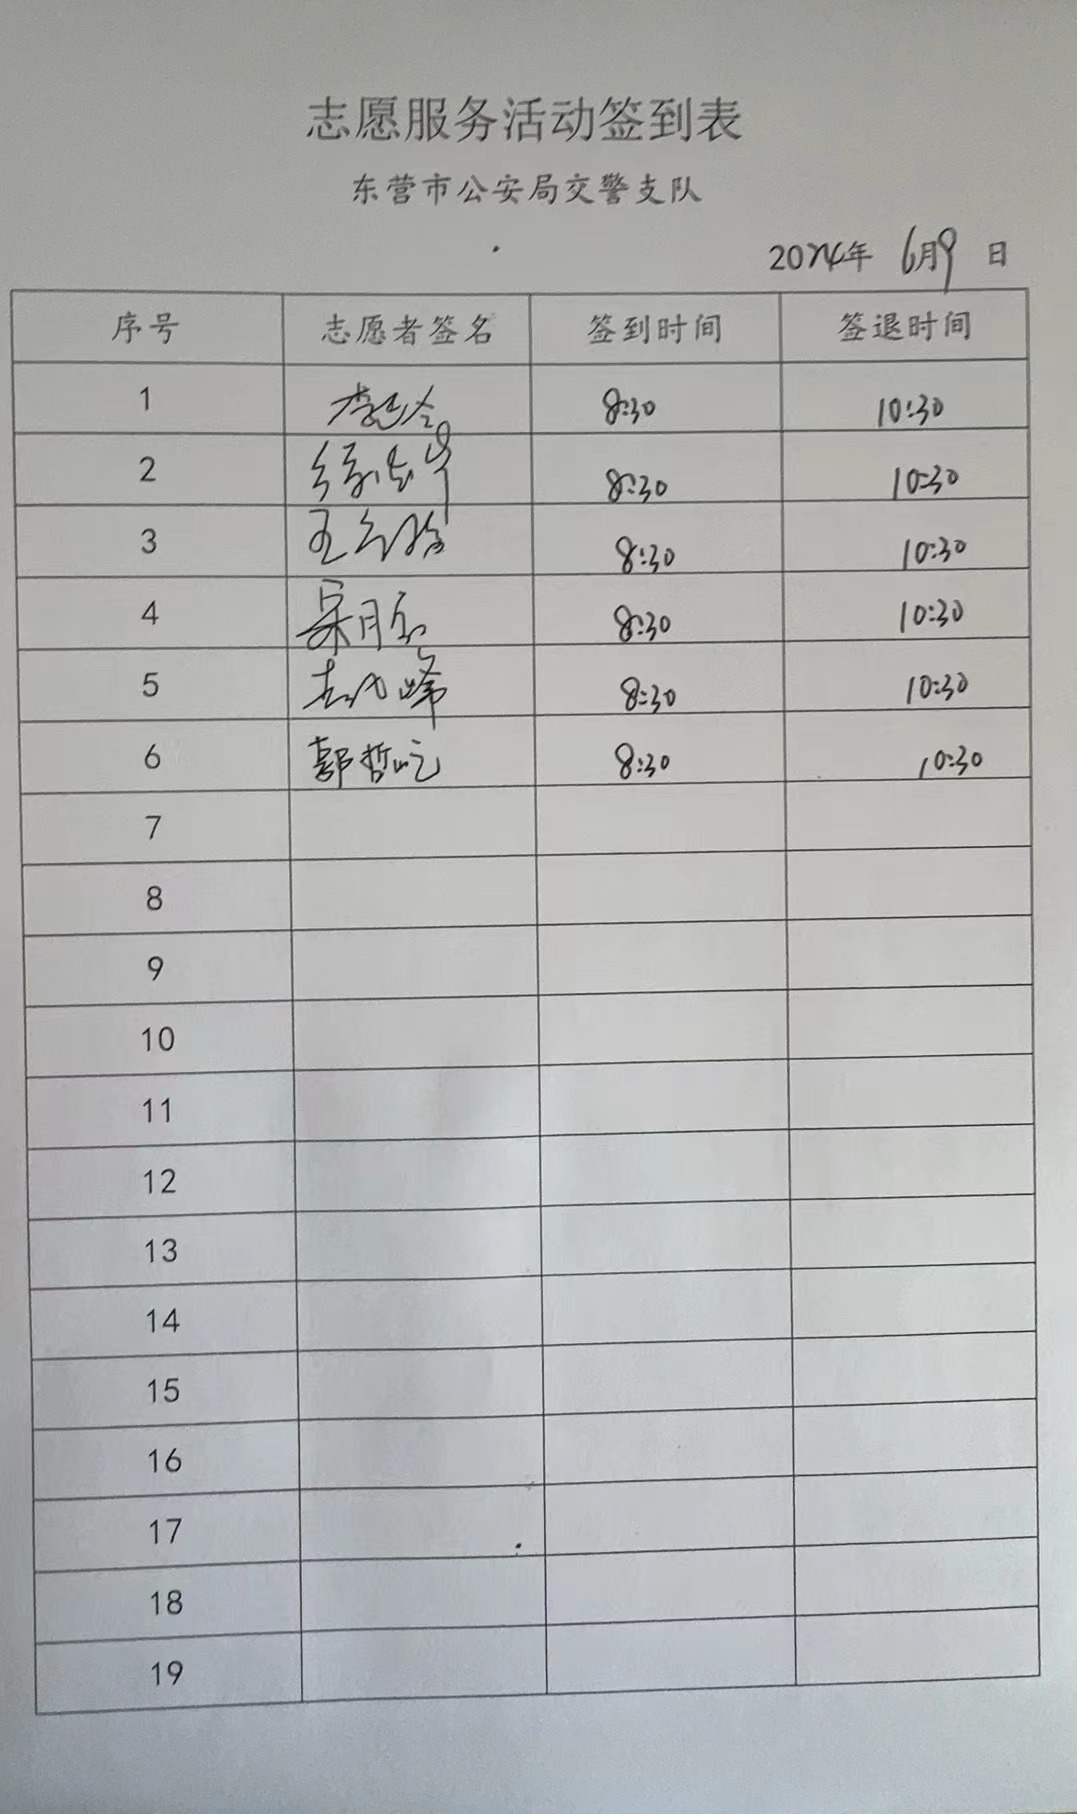 志愿服务活动签到表
东营市公安局交警支队
2024年 6月9日
序号 志愿者签名 签到时间 签退时间
1 8:30 10:30
2 8:30 10:30
3 王 8:30 10:30
4 8:30 10:30
5 峰 8:30 10:30
6 郭哲屹 8:30 10:30
7
8
9
10
11
12
13
14
15
16
17
18
19